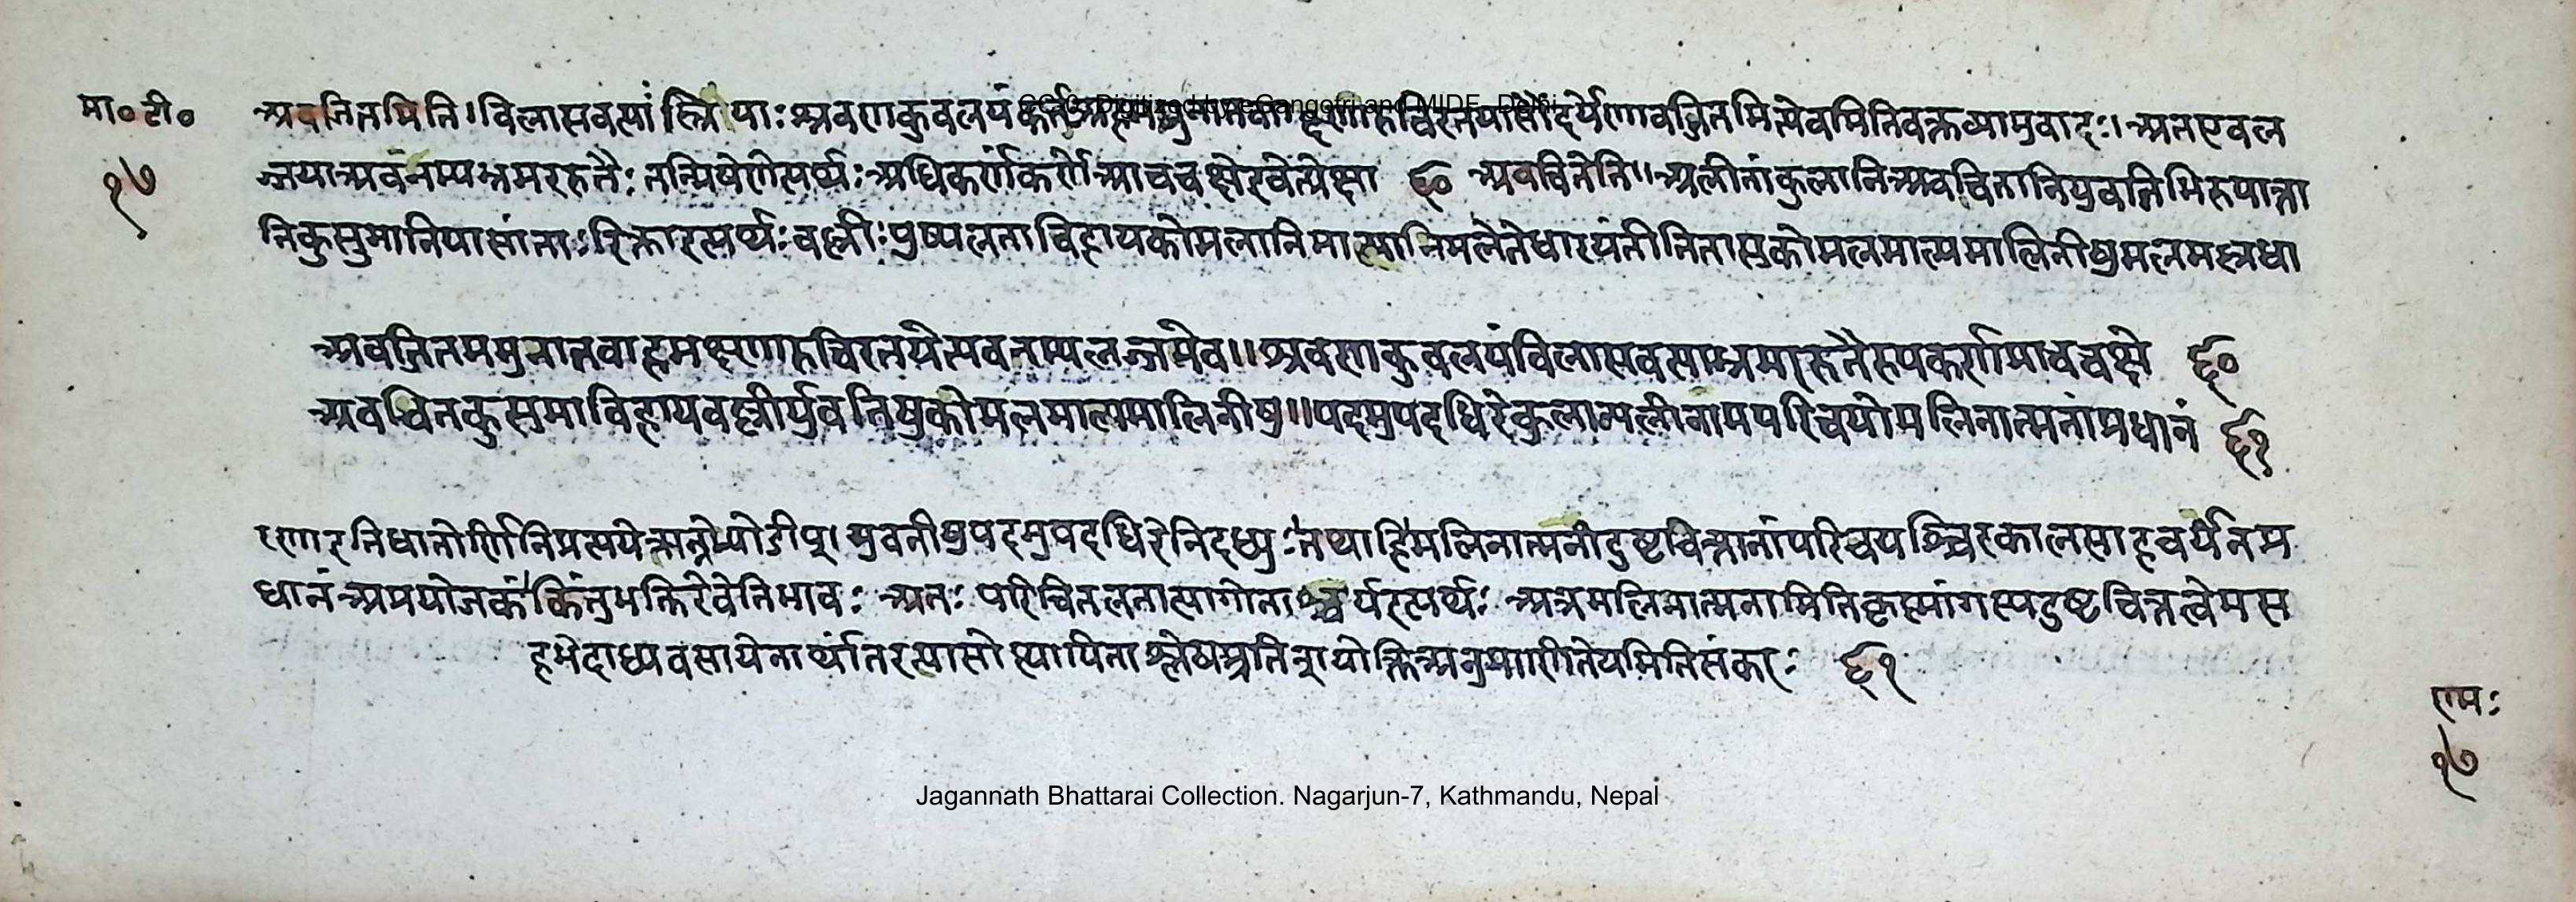 मा० टी०
१७
अवजितमिति।विलासवत्यां स्त्रियाः श्रवणकुवलयं कर्तृ रुचिरतयासौंदर्येणावजितमित्येवमितिवक्तव्यानुवादः।अतएवल
ज्जयाअवनम्यभ्रमररुतैः तन्मिषेणेत्यर्थः अधिकर्णंकर्णे आचचक्षेइवेत्प्रेक्षा ६० अवचितेति॥अलीनांकुलानिअवचितानियुवतिभिरुपात्ता
निकुसुमानियासांताः रिक्ताइत्यर्थः वल्लीः पुष्पलताविहायकोमलानिमाल्यानिमलंतेधारयंतीतितासुकोमलमाल्यमालिनीषुमलमल्लधा
अवजितमधुनातवाहमक्ष्णारुचिरतयेत्यवनम्यलज्जयेव॥श्रवणकुवलयंविलासवत्याभ्रमररुतैरुपकर्णमाचचक्षे ६०
अवचितकुसुमाविहायवल्लीर्युवतिषुकोमलमाल्यमालिनीषु॥पदमुपदधिरेकुलान्यलीनामपरिचयोमलिनात्मनांप्रधानं ६१
रणइतिधातोर्णिनिप्रत्ययेऋन्नेभ्योङीप्।युवतीषुपदमुपदधिरेनिदध्युः तथाहिमलिनात्मनांदुष्टचित्तानांपरिचयश्चिरकालसाहचर्यंनप्र
धानंअप्रयोजकं किंतुभक्तिरेवेतिभावः अतः परिचितलतात्यागोनाश्चर्यइत्यर्थः अत्रमलिनात्मनामितिकृष्णांगस्यदुष्टचित्तत्वेमस
हभेदाध्यवसायेनार्थांतरन्यासोत्थापिताश्लेषप्रतिभोक्तिअनुप्राणितेयमितिसंकरः ६१
रामः
१७
Jagannath Bhattarai Collection. Nagarjun-7, Kathmandu, Nepal